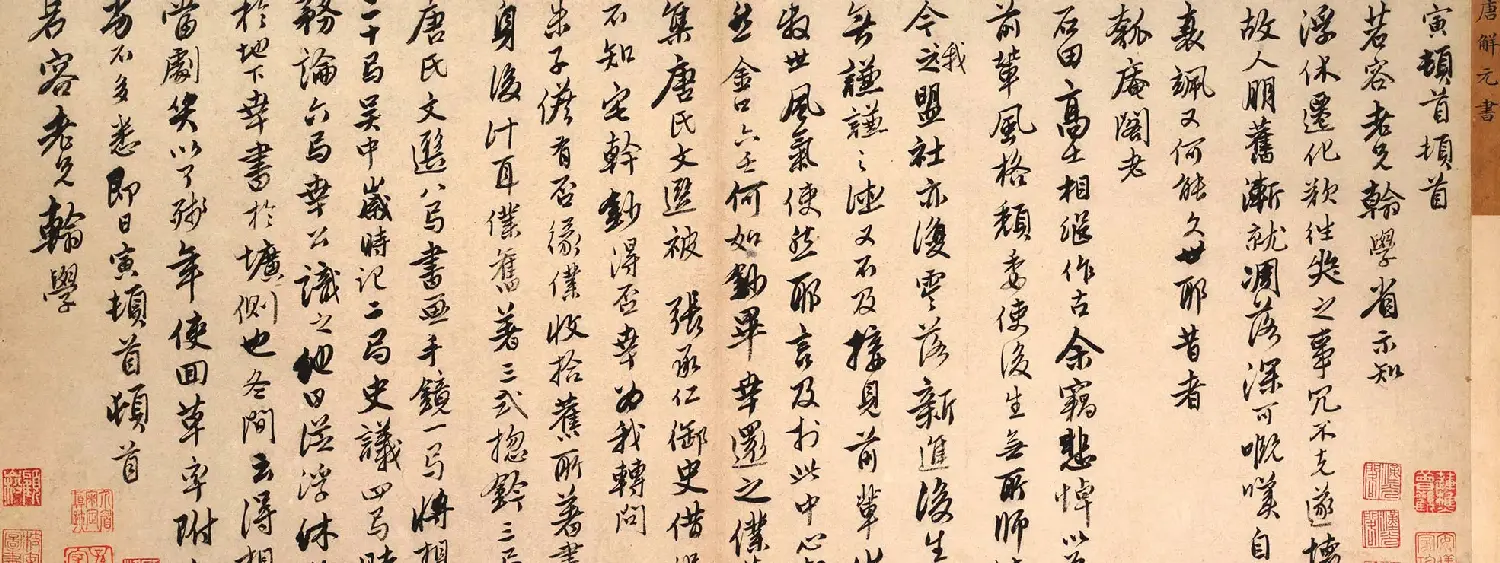 唐解元書
寅頓首頓首
若容老兄翰學省示知
浮休遷化欵往夾之事冗不克遂懷
故人朋舊漸就凋落深可嘅嘆自
衰颯又何能久世耶昔者
瓠庵閣老
石田高士相繼作古余竊悲悼以爲
前輩風格頹委使後生無所師
今之我盟社亦復零落新進後生
無謙謙之德又不及接見前輩
衰世風氣使然耶言及於此中心
然金口六壬何如鈔畢幸還之僕
集唐氏文選被 張承仁御史借
不知宅幹鈔得否幸爲我轉問
朱子儋肯否緣僕收拾舊所著書
身後計耳僕舊著三式揔鈐三
唐氏文選八局書画手鏡一局將相
二十局吳中歲時記二局史議四局時
務論六局幸公識之他日從浮休
於地下幸書於壙側也冬間去得相
當劇矣以了殘年使回草率附
劣不多悉即日寅頓首頓首
若容老兄翰學